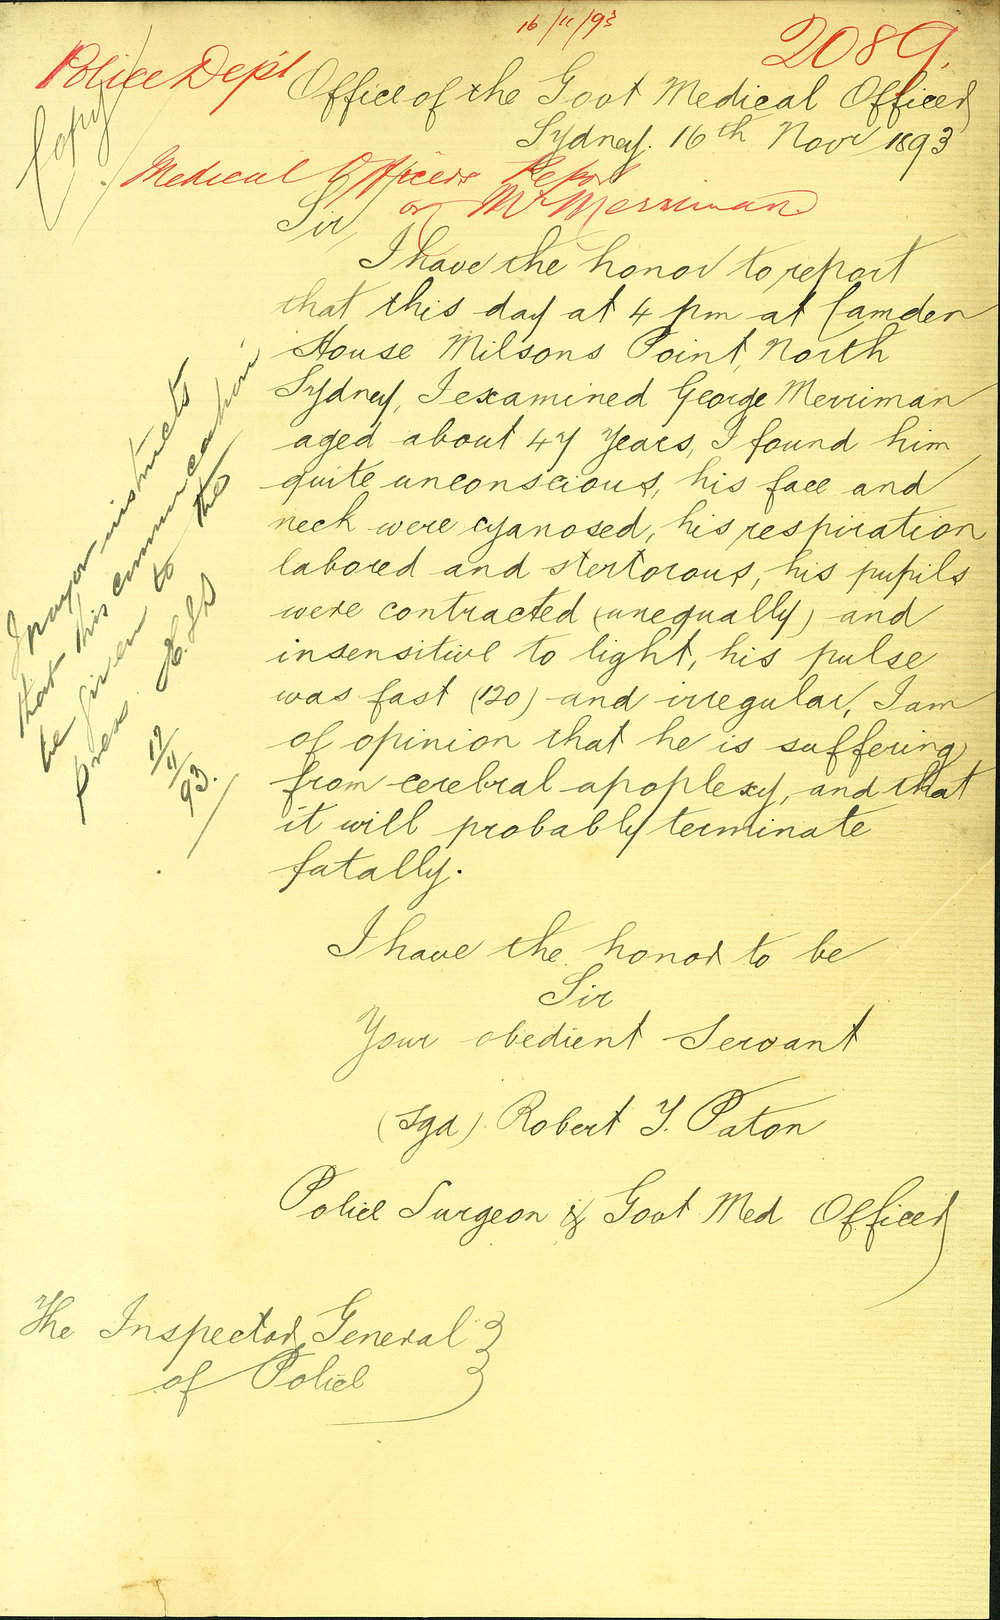 16/11/93
2089.
Police Dep't
Copy
Office of the Govt Medical Officer
Sydney. 16th Novr 1893
Medical Officers Report
on Mr Merriman
Sir,
I have the honor to report
that this day at 4 pm at Camden
House Milsons Point, North
Sydney, I examined George Merriman
aged about 47 years, I found him
quite unconscious, his face and
neck were cyanosed, his respiration
labored and stertorous, his pupils
were contracted (unequally) and
insensitive to light, his pulse
was fast (120) and irregular, I am
of opinion that he is suffering
from cerebral apoplexy, and that
it will probably terminate
fatally.
I have the honor to be
Sir
Your obedient Servant
(Sgd) Robert T. Paton
Police Surgeon & Govt Med Officer
The Inspector General
of Police
Mayor instructs
that this communication
be given to the
press
17/11/93.